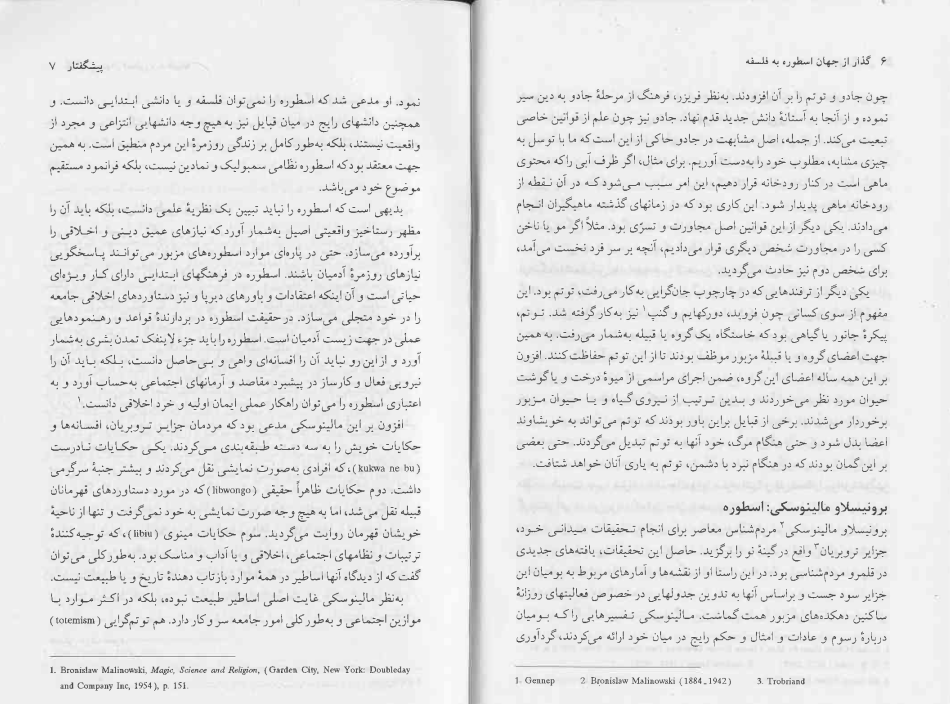 ۶ گذار از جهان اسطوره به فلسفه
چون جادو و توتم را بر آن افزودند. به‌نظر فریزر، فرهنگ از مرحلهٔ جادو به دین سیر
نموده و از آنجا به آستانهٔ دانش جدید قدم نهاد. جادو نیز چون علم از قوانین خاصی
تبعیت می‌کند. از جمله، اصل مشابهت در جادو حاکی از این است که ما با توسل به
چیزی مشابه، مطلوب خود را به‌دست آوریم. برای مثال، اگر ظرف آبی را که محتوی
ماهی است در کنار رودخانه قرار دهیم، این امر سبب می‌شود که در آن نقطه از
رودخانه ماهی پدیدار شود. این کاری بود که در زمانهای گذشته ماهیگیران انجام
می‌دادند. یکی دیگر از این قوانین اصل مجاورت و تسرّی بود. مثلاً اگر مو یا ناخن
کسی را در مجاورت شخص دیگری قرار می‌دادیم، آنچه بر سر فرد نخست می‌آمد،
برای شخص دوم نیز حادث می‌گردید.
یکی دیگر از ترفندهایی که در چارچوب جان‌گرایی به‌کار می‌رفت، توتم بود. این
مفهوم از سوی کسانی چون فروید، دورکهایم و گنپ۱ نیز به‌کار گرفته شد. توتم،
پیکرهٔ جانور یا گیاهی بود که خاستگاه یک گروه یا قبیله به‌شمار می‌رفت. به همین
جهت اعضای گروه و یا قبیلهٔ مزبور موظف بودند تا از این توتم حفاظت کنند. افزون
بر این همه ساله اعضای این گروه، ضمن اجرای مراسمی از میوهٔ درخت و یا گوشت
حیوان مورد نظر می‌خوردند و بدین ترتیب از نیروی گیاه و یا حیوان مزبور
برخوردار می‌شدند. برخی از قبایل براین باور بودند که توتم می‌تواند به خویشاوند
اعضا بدل شود و حتی هنگام مرگ، خود آنها به توتم تبدیل می‌گردند. حتی بعضی
بر این گمان بودند که در هنگام نبرد با دشمن، توتم به یاری آنان خواهد شتافت.
برونیسلاو مالینوسکی: اسطوره
برونیسلاو مالینوسکی۲ مردم‌شناس معاصر برای انجام تحقیقات میدانی خود،
جزایر تروبریان۳ واقع در گینهٔ نو را برگزید. حاصل این تحقیقات، یافته‌های جدیدی
در قلمرو مردم‌شناسی بود. در این راستا او از نقشه‌ها و آمارهای مربوط به بومیان این
جزایر سود جست و براساس آنها به تدوین جدولهایی در خصوص فعالیتهای روزانهٔ
ساکنین دهکده‌های مزبور همت گماشت. مالینوسکی تفسیرهایی را که بومیان
دربارهٔ رسوم و عادات و امثال و حکم رایج در میان خود ارائه می‌کردند، گردآوری
1. Gennep 2. Bronislaw Malinowski (1884_1942) 3. Trobriand
پیشگفتار ۷
نمود. او مدعی شد که اسطوره را نمی‌توان فلسفه و یا دانشی ابتدایی دانست. و
همچنین دانشهای رایج در میان قبایل نیز به هیچ وجه دانشهایی انتزاعی و مجرد از
واقعیت نیستند، بلکه به‌طور کامل بر زندگی روزمرهٔ این مردم منطبق است. به همین
جهت معتقد بود که اسطوره نظامی سمبولیک و نمادین نیست، بلکه فرانمود مستقیم
موضوع خود می‌باشد.
بدیهی است که اسطوره را نباید تبیین یک نظریهٔ علمی دانست، بلکه باید آن را
مظهر رستاخیز واقعیتی اصیل به‌شمار آورد که نیازهای عمیق دینی و اخلاقی را
برآورده می‌سازد. حتی در پاره‌ای موارد اسطوره‌های مزبور می‌توانند پاسخگویی
نیازهای روزمرهٔ آدمیان باشند. اسطوره در فرهنگهای ابتدایی دارای کار ویژه‌ای
حیاتی است و آن اینکه اعتقادات و باورهای دیرپا و نیز دستاوردهای اخلاقی جامعه
را در خود متجلی می‌سازد. در حقیقت اسطوره در بردارندهٔ قواعد و رهنمودهایی
عملی در جهت زیست آدمیان است. اسطوره را باید جزء لاینفک تمدن بشری به‌شمار
آورد و از این رو نباید آن را افسانه‌ای واهی و بی‌حاصل دانست، بلکه باید آن را
نیرویی فعال و کارساز در پیشبرد مقاصد و آرمانهای اجتماعی به‌حساب آورد و به
اعتباری اسطوره را می‌توان راهکار عملی ایمان اولیه و خرد اخلاقی دانست.۱
افزون بر این مالینوسکی مدعی بود که مردمان جزایر تروبریان، افسانه‌ها و
حکایات خویش را به سه دسته طبقه‌بندی می‌کردند. یکی حکایات نادرست
(kukwa ne bu)، که افرادی به‌صورت نمایشی نقل می‌کردند و بیشتر جنبهٔ سرگرمی
داشت. دوم حکایات ظاهراً حقیقی (libwongo) که در مورد دستاوردهای قهرمانان
قبیله نقل می‌شد، اما به هیچ وجه صورت نمایشی به خود نمی‌گرفت و تنها از ناحیهٔ
خویشان قهرمان روایت می‌گردید. سوم حکایات مینوی (libiu)، که توجیه‌کنندهٔ
ترتیبات و نظامهای اجتماعی، اخلاقی و یا آداب و مناسک بود. به‌طور کلی می‌توان
گفت که از دیدگاه آنها اساطیر در همهٔ موارد بازتاب دهندهٔ تاریخ و یا طبیعت نیست.
به‌نظر مالینوسکی غایت اصلی اساطیر طبیعت نبوده، بلکه در اکثر موارد با
موازین اجتماعی و به‌طور کلی امور جامعه سر و کار دارد. هم توتم‌گرایی (totemism)
1. Bronislaw Malinowski, Magic, Science and Religion, (Garden City, New York: Doubleday
and Company Inc, 1954), p. 151.